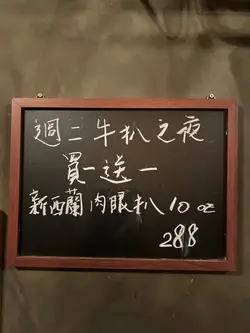 週二牛扒之夜
買一送一
新西蘭肉眼扒 10 oz
288